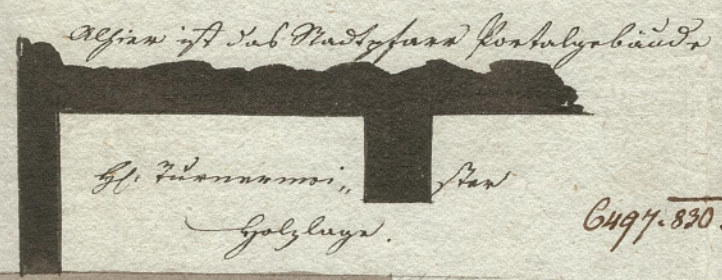 Alhier ist das Stadtpfarr Portalgebäude
H. Turnermei„ ster
Holzlage.
6497.830.